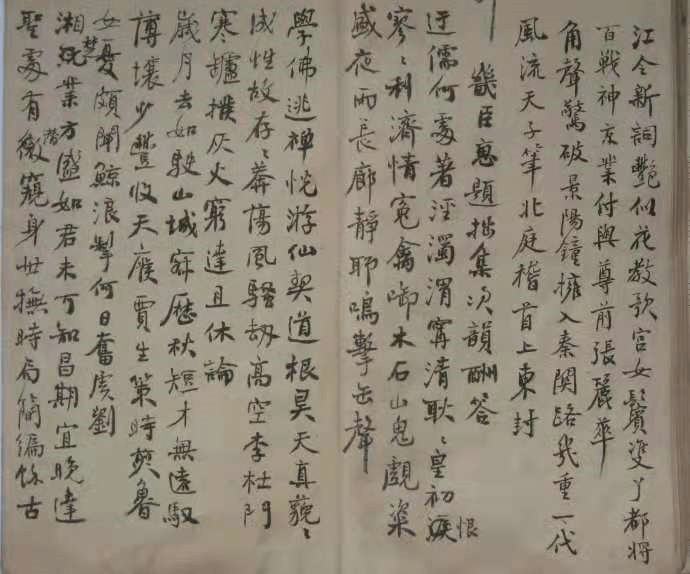 江令新詞艷似花教歌宮女鬢雙丫都將
百戰神京業付與尊前張麗華
角聲驚破景陽鐘擁入秦關路幾重一代
風流天子筆北庭稽首上東封
幾臣惠題拙集次韻酬答
迂儒何處著涇濁渭寗清耿〻皇初恨
寥〻利濟情冤禽啣木石山鬼覷粢
盛夜雨長廊靜聊鳴擊缶聲
學佛逃禪悅游仙契道根昊天真藐〻
成性故存〻莽蕩風騷劫高空李杜門
寒罏撥灰火窮達且休論
歲月去如駛山城寂歷秋短才無遠馭
薄壤少豐收天廢賈生策時熒魯
女憂頗聞鯨浪掣何日奮虔劉
湘楚業方盛如君未可知昌期宜晚達
聖處有微窺身世撫時局簡編餘古